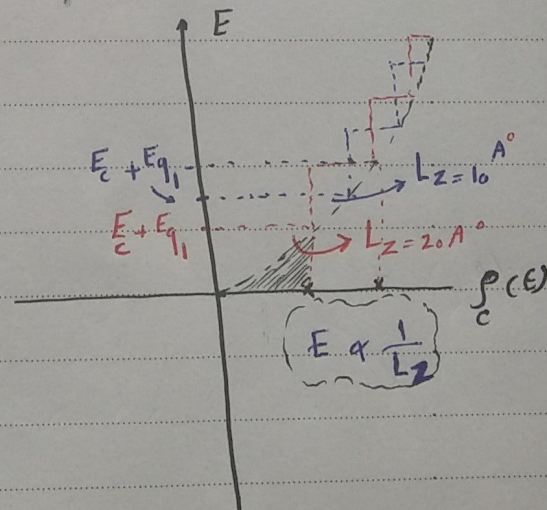 E
E_c + E_q1
L_z = 10 A°
E_c + E_q1
L_z = 20 A°
ρ_c (E)
E ∝ 1/L_z